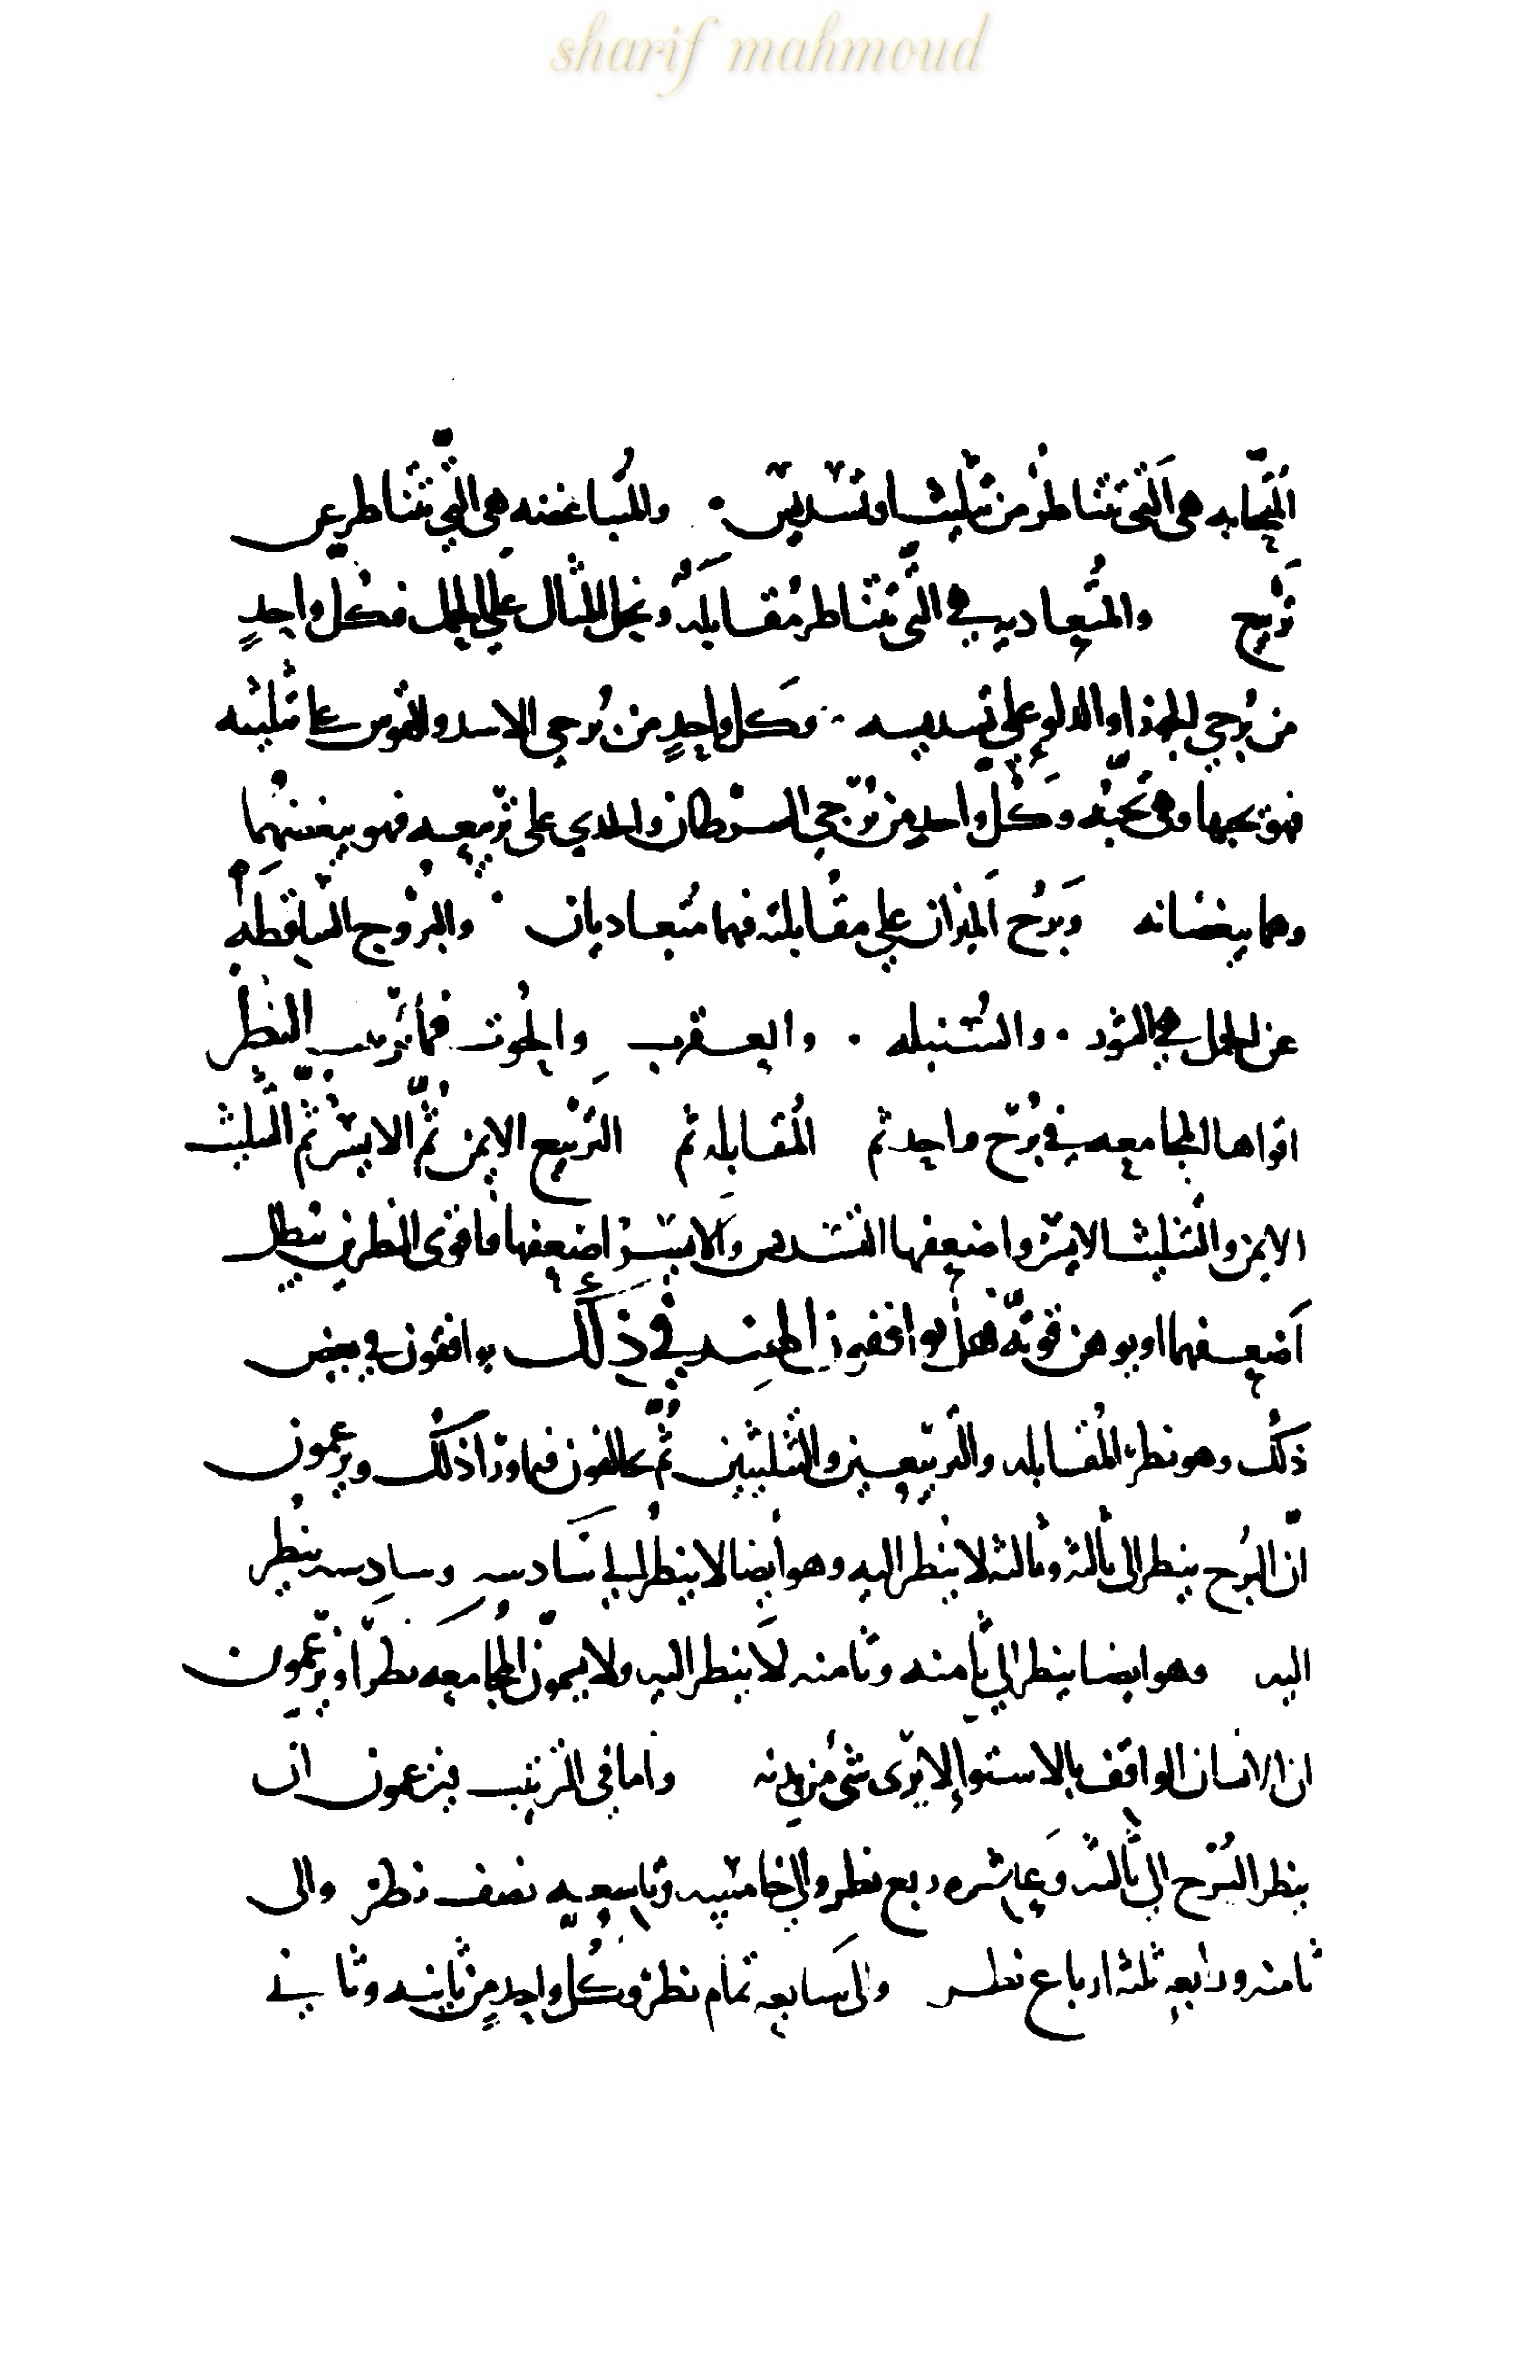 sharif mahmoud
المتحابه هى التى تتناظر من تثليث او تسديس . والمتباغضه هى التى تتناظر عن
تربيع والمتعاديه هي التى تتناظر مقابلة ونجعل المثال على الحمل فكل واحدٍ
من برجي الجوزا والدلو على تسديسه وكل واحدٍ من برجي الاسد والقوس على تثليثه
فهو يحبها وهى تحبّه وكلّ واحد من برجي السرطان والجدي على تربيعه فهو يبغضهما
وهما يبغضانه وبرج الميزان على مقابلته فهما متعاديان . والبروج الساقطه
عن الحمل هي الثور . والسنبله . والعقرب والحوت فما ترتيب النظر
اقواها المجامعه في برج واحد ثم المقابله ثم التربيع الايمن ثمّ الايسر ثم التثليث
الايمن والتثليث الايسر واضعفها التسديس والايسر اضعفها فاقوى النظرين يبطل
اضعفهما او يوهن قوته هل يوافقون الهند في ذلك يوافقون في بعض
ذلك وهو نظر المقابله والتربيعين والتثليثين ثمّ يخالفون فيما ورا ذلك ويزعمون
انّ البرج ينظر الى ثالثه وثالثه لا ينظر اليه وهو ايضا لا ينظر الي سادسه وسادسه ينظر
اليه وهو ايضا ينظر الي ثامنه وثامنه لا ينظر اليه ولا يسمون المجامعه نظرا ويزعمون
ان الانسان الواقف بالاستوا لا يرى شي من بدنه واما في الترتيب فيزعمون ان
ينظر البرج الي ثالثه وعاشره ربع نظر والي خامسه وتاسعه نصف نظر والى
ثامنه ورابعه ثلثه ارباع نظر والى سابعه تمام نظر وكل واحد من ثانيه وثاني